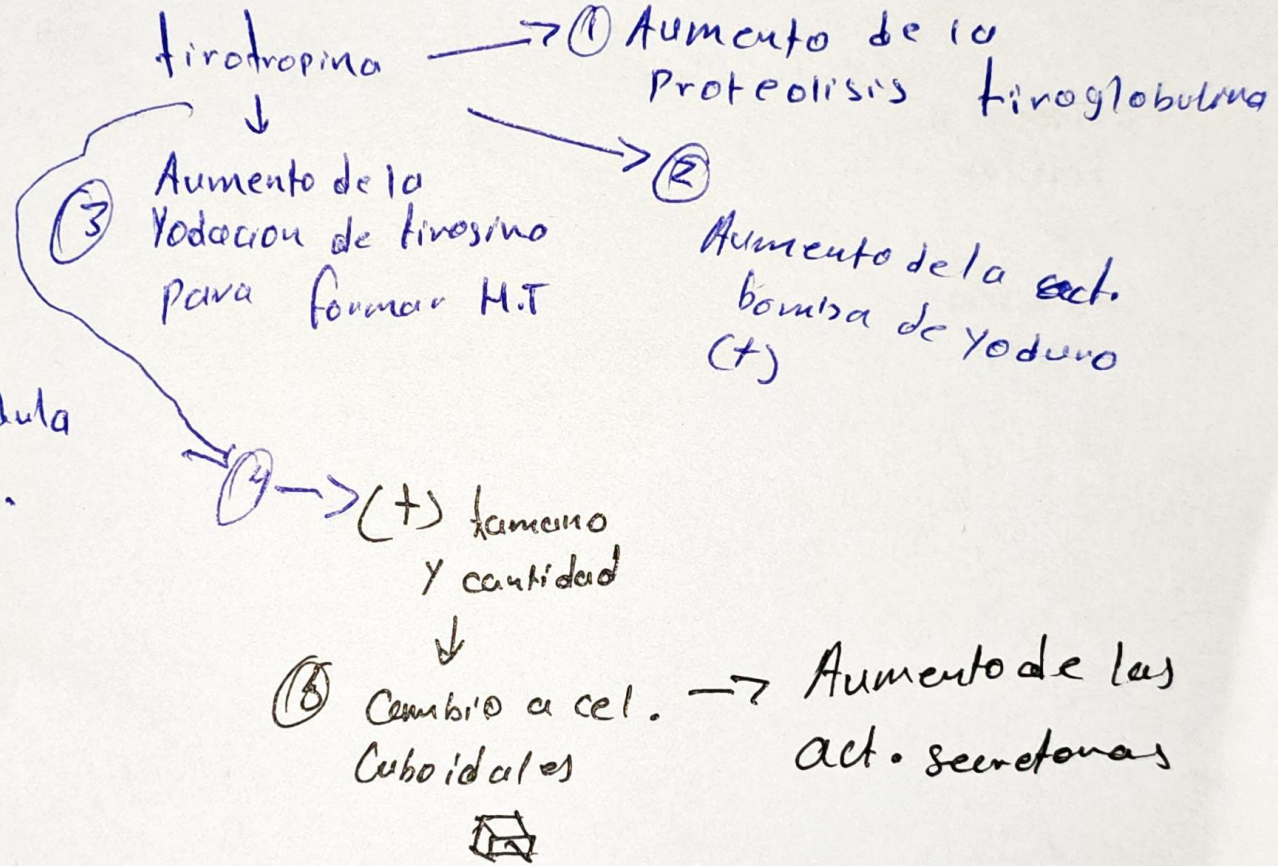 tirotropina → ① Aumento de la
Proteolisis tiroglobulina
↓
②
Aumento de la act.
bomba de yoduro
(+)
③ Aumento de la
Yodacion de tirosina
para formar H.T
dula
④ → (+) tamano
y cantidad
↓
Cambio a cel. → Aumento de las
Cuboidales act. secretoras